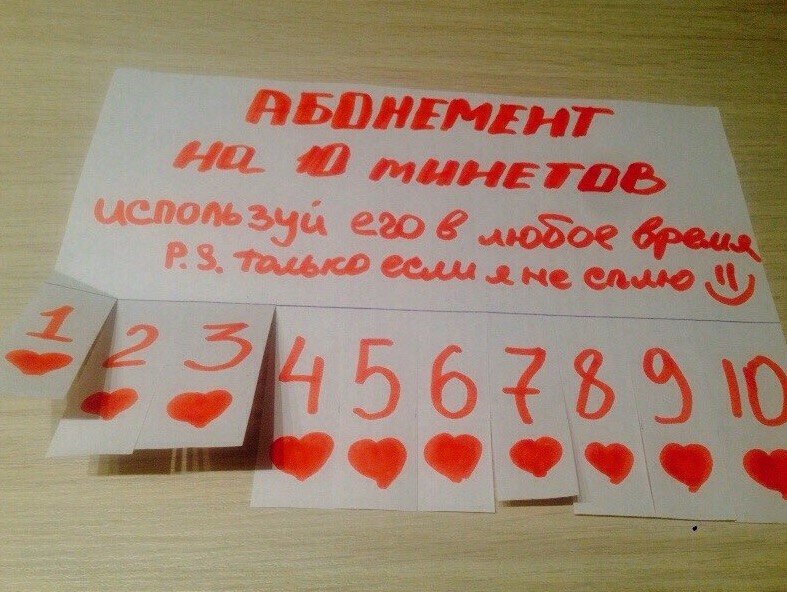 АБОНЕМЕНТ
на 10 минетов
используй его в любое время
P.S. только если я не сплю
1 2 3 4 5 6 7 8 9 10